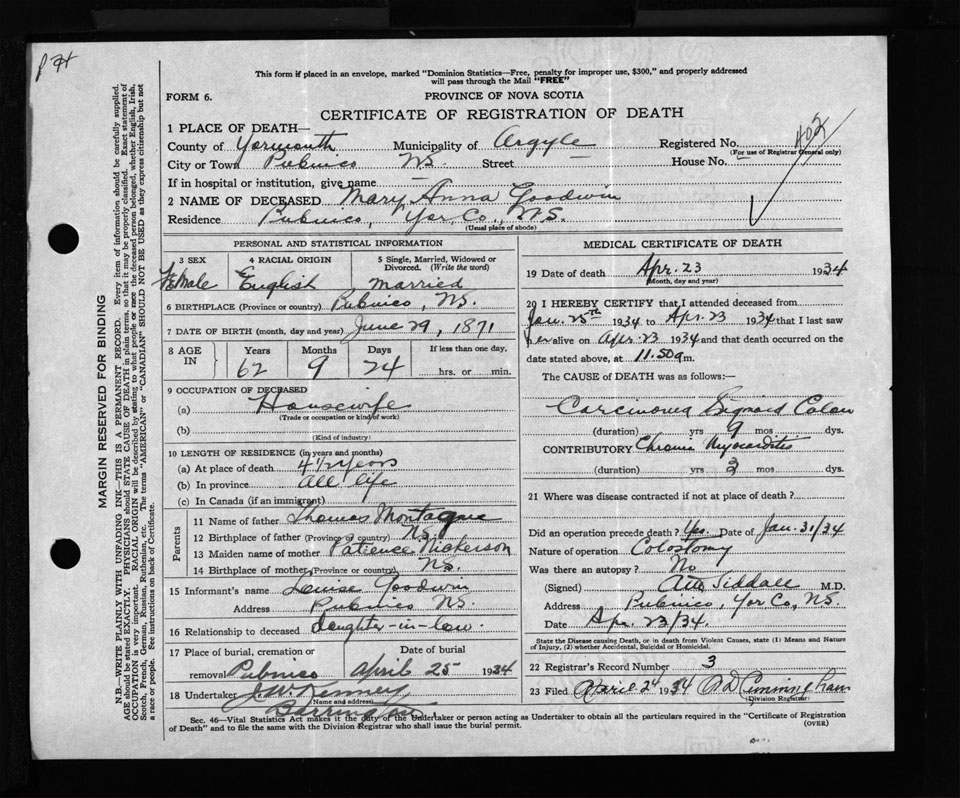 P 74
This form if placed in an envelope, marked "Dominion Statistics—Free, penalty for improper use, $300," and properly addressed
will pass through the Mail "FREE"
FORM 6.
PROVINCE OF NOVA SCOTIA
CERTIFICATE OF REGISTRATION OF DEATH
1 PLACE OF DEATH—
County of Yarmouth Municipality of Argyle Registered No. 402
(For use of Registrar General only)
City or Town Pubnico NS. Street — House No. —
If in hospital or institution, give name —
2 NAME OF DECEASED Mary Anna Goodwin
Residence Pubnico, Yar Co., NS.
(Usual place of abode)
PERSONAL AND STATISTICAL INFORMATION
3 SEX 4 RACIAL ORIGIN 5 Single, Married, Widowed or
Divorced. (Write the word)
Female English Married
6 BIRTHPLACE (Province or country) Pubnico, NS.
7 DATE OF BIRTH (month, day and year) June 29, 1871
8 AGE IN Years Months Days If less than one day,
62 9 24 hrs. or min.
9 OCCUPATION OF DECEASED
(a) Housewife
(Trade or occupation or kind of work)
(b)
(Kind of industry)
10 LENGTH OF RESIDENCE (in years and months)
(a) At place of death 41/2 years
(b) In province all life
(c) In Canada (if an immigrant)
Parents
11 Name of father Thomas Montague
12 Birthplace of father (Province or country) NS.
13 Maiden name of mother Patience Nickerson
14 Birthplace of mother (Province or country) NS.
15 Informant's name Louise Goodwin
Address Pubnico NS.
16 Relationship to deceased daughter-in-law.
17 Place of burial, cremation or Date of burial
removal Pubnico April 25 1934
18 Undertaker J. W. Kenney
(Name and address)
Barrington
MEDICAL CERTIFICATE OF DEATH
19 Date of death Apr. 23 1934
(Month, day and year)
20 I HEREBY CERTIFY that I attended deceased from
Jan. 25th 1934 to Apr. 23 1934 that I last saw
her alive on Apr. 23 1934 and that death occurred on the
date stated above, at 11.50 a m.
The CAUSE of DEATH was as follows:—
Carcinoma Sigmoid Colon
(duration) yrs 9 mos dys.
CONTRIBUTORY Chronic Myocarditis
(duration) yrs 3 mos dys.
21 Where was disease contracted if not at place of death?
Did an operation precede death? Yes. Date of Jan. 31/34
Nature of operation Colostomy
Was there an autopsy? No
(Signed) Siddall M.D.
Address Pubnico, Yar Co, NS.
Date Apr. 23/34.
State the Disease causing Death, or in death from Violent Causes, state (1) Means and Nature
of Injury, (2) whether Accidental, Suicidal or Homicidal.
22 Registrar's Record Number 3
23 Filed April 24 1934 A D Cunningham
(Division Registrar)
Sec. 46—Vital Statistics Act makes it the duty of the Undertaker or person acting as Undertaker to obtain all the particulars required in the "Certificate of Registration
of Death" and to file the same with the Division Registrar who shall issue the burial permit. (OVER)
MARGIN RESERVED FOR BINDING
N.B.—WRITE PLAINLY WITH UNFADING INK—THIS IS A PERMANENT RECORD. Every item of information should be carefully supplied.
AGE should be stated EXACTLY. PHYSICIANS should STATE CAUSE OF DEATH in plain terms, so that it may be properly classified. Exact statement of
OCCUPATION is very important. RACIAL ORIGIN will be described by stating to what people or race the deceased person belonged, whether English, Irish,
Scotch, French, German, Russian, Ruthenian, etc. The terms "AMERICAN" or "CANADIAN" SHOULD NOT BE USED as they express citizenship but not
a race or people. See instructions on back of Certificate.